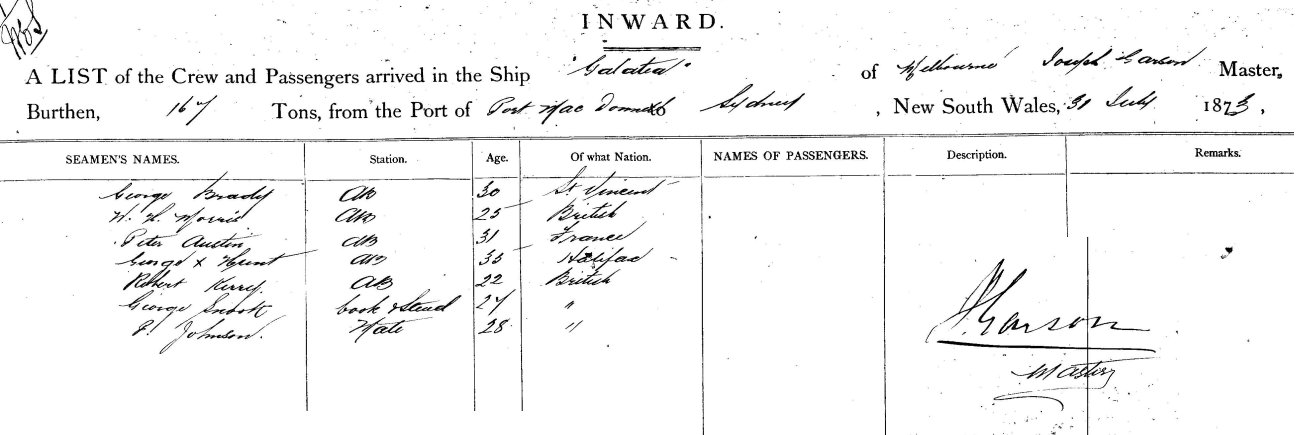 INWARD.
A LIST of the Crew and Passengers arrived in the Ship "Galatea" of Melbourne Joseph Garson Master,
Burthen, 167 Tons, from the Port of Port Mac Donnell to Sydney , New South Wales, 31 July 1873,
SEAMEN'S NAMES. Station. Age. Of what Nation. NAMES OF PASSENGERS. Description. Remarks.
George Brady AB 30 St Vincent
W. H. Morris AB 25 British
Peter Austin AB 31 France
George x Hunt AB 35 Halifax
Robert Kerry. AB 22 British
George Snook Cook & Steud 27 "
P. Johnson. Mate 28 "
J Garson
Master